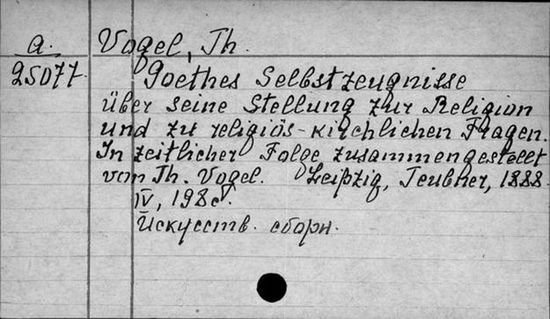 a. Vogel, Th.
25077. Goethes Selbstzeugnisse
über seine Stellung zur Religion
und zu religiös-kirchlichen Fragen.
In zeitlicher Folge zusammengestellt
von Th. Vogel. Leipzig, Teubner, 1888.
IV, 198 c.
Искусств. сборн.